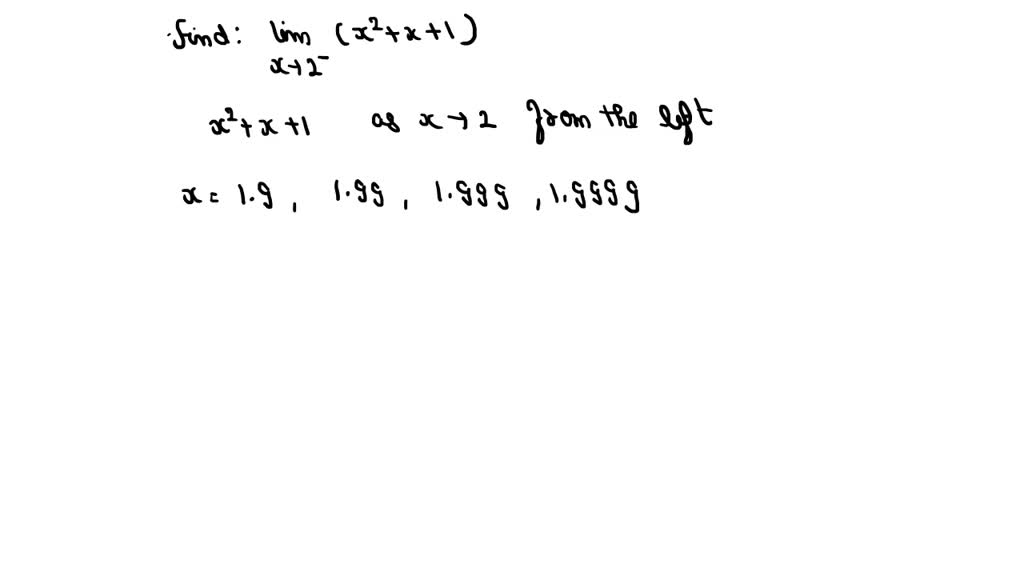 find: lim (x²+x+1)
x→2⁻
x²+x+1 as x→2 from the left
x = 1.9, 1.99, 1.999, 1.9999